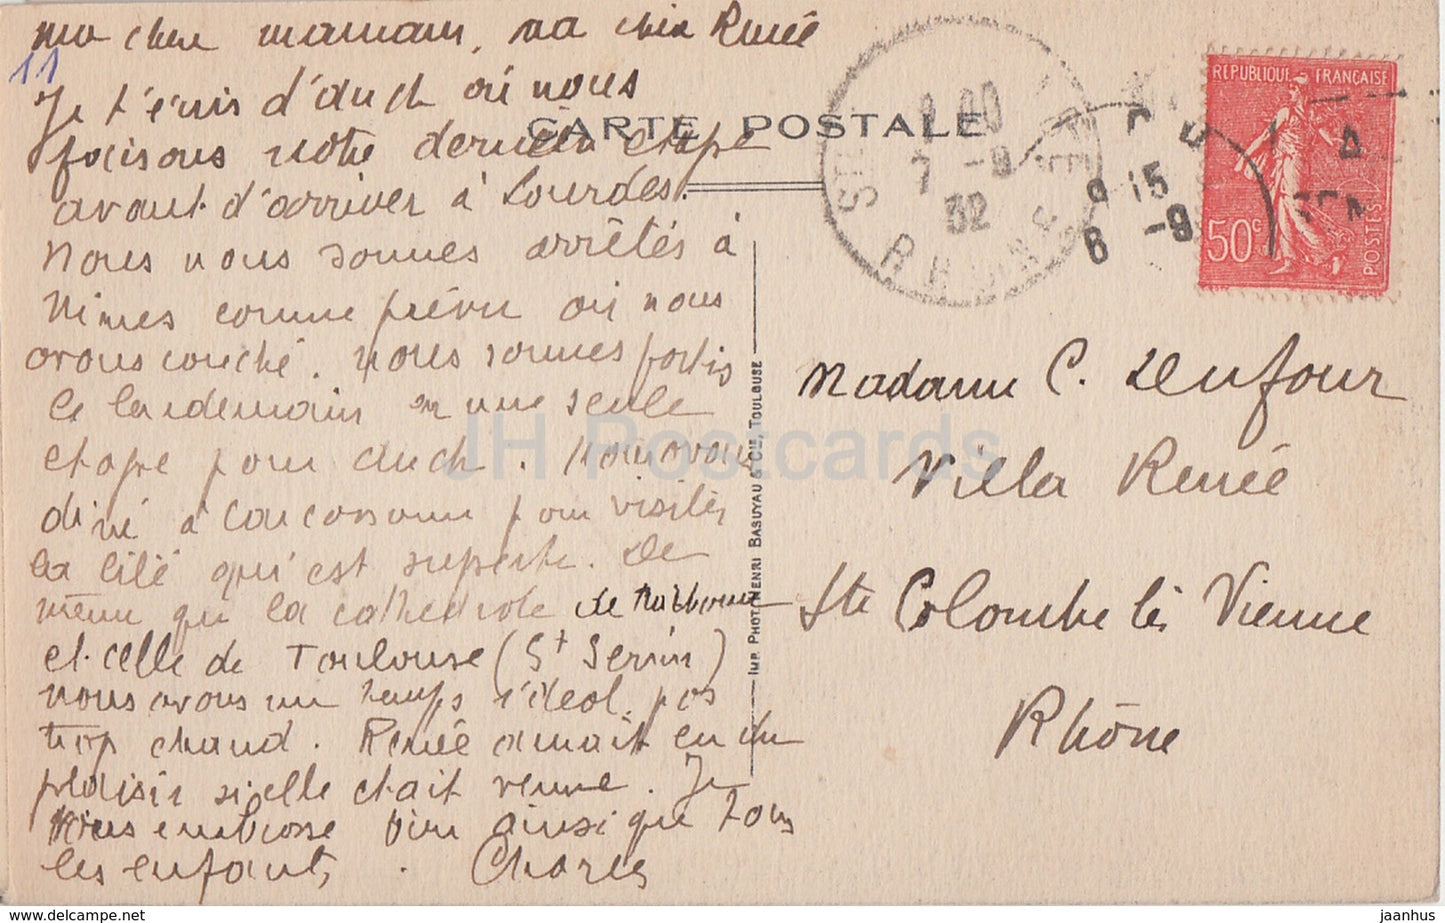 ma chere maman, ma chere Renée
11
Je t'écris d'Auch où nous
faisons notre dernière etape
avant d'arriver à Lourdes.
Nous nous sommes arrêtés à
Nimes comme prévu où nous
avons couché. Nous sommes partis
le lendemain en une seule
etape pour Auch. Nous avons
diné à Carcassonne pour visiter
la cité qui est superbe. De
même que la cathedrale de Narbonne
et celle de Toulouse (St Sernin)
nous avons un temps idéal. pas
trop chaud. Renée aurait eu du
plaisir si elle etait venue. Je
vous embrasse bien ainsi que tous
les enfants, . Charles
CARTE POSTALE
IMP. PHOT. HENRI BASUYAU & CIE, TOULOUSE
RHONE
7 -9
32
9 15
6 -9
REPUBLIQUE FRANÇAISE
50c
POSTES
Madame C. Dufour
Villa Renée
Ste Colombe lès Vienne
Rhône
JH Postcards
delcampe.net
jaanhus